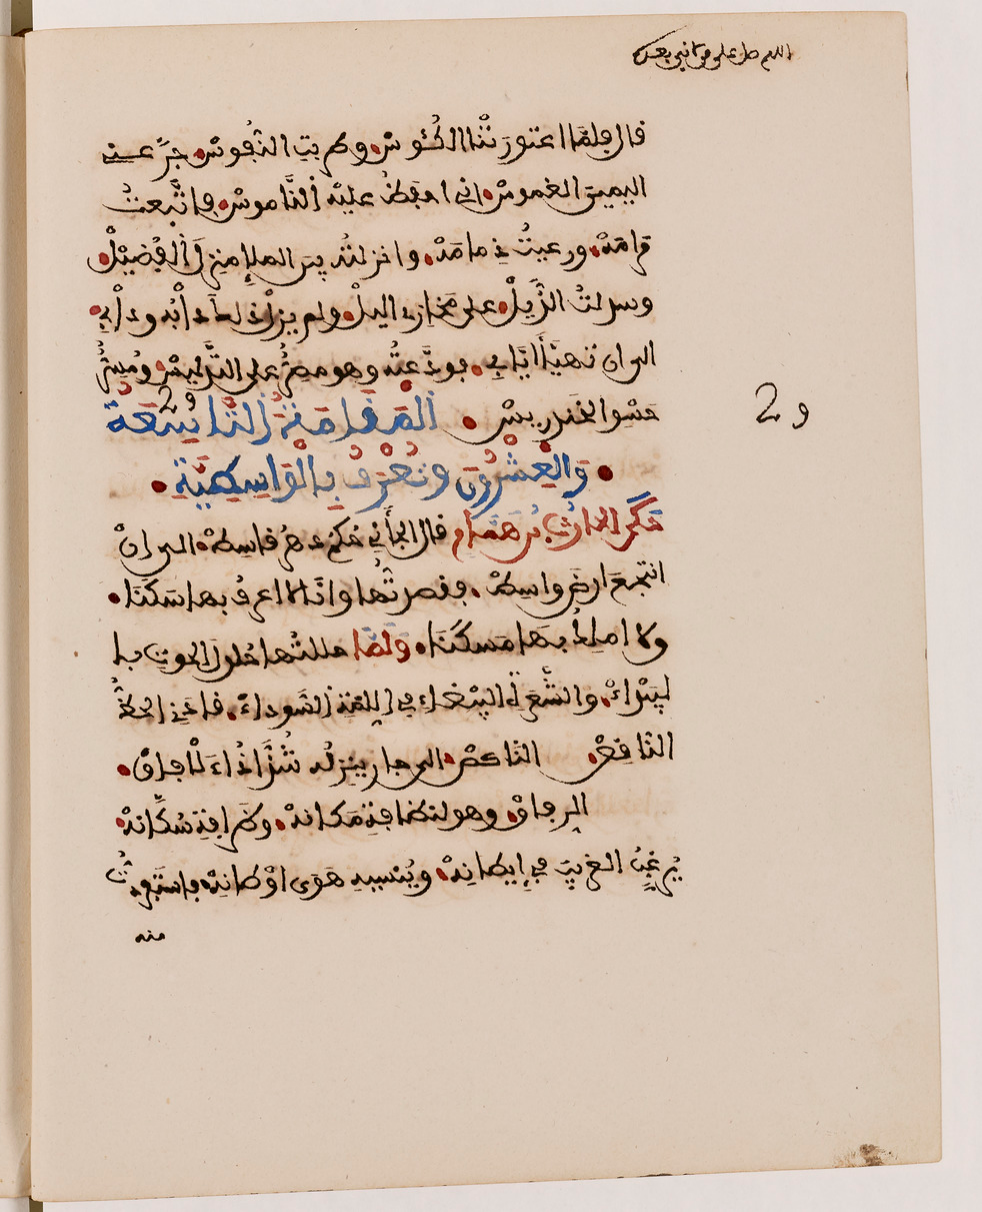 اللهم صل على من لا نبي بعده
قال فلمّا اعتورتنا الكُئُوسْ وطربت النفوسْ جرَّعني
اليمين الغموسْ اني احفظُ عليه النَّاموسْ فاتَّبعتُ
مرامَهْ ورعيتُ ذمامَهْ وانزلتُه بين الملإ منزلَةَ الفُضيْلْ
وسدلتُ الذَّيلْ على مخازي اليلْ ولم يزلْ ذلك دأبُه ودأبي
الى ان تهيَّأ ايابي فودَّعتُه وهو مصِرٌّ على التدليسْ ومُسِرٌّ
حسْو الخندريسْ المقامة التاسعة
والعشرون وتعرف بالواسطية
حكى الحارث بن همام قال الجأني حُكم دهرٍ قاسِطْ الى انْ
انتجعَ ارض واسطْ فقصدتُها وانا لا اعرف بها سَكَنَا
ولا املك بها مَسكنَا ولمّا حللتُها حُلولَ الحوت با
لبيْداءْ والشَّعَرة البيْضاء في اللمة السَّوداءْ قادني الحظُّ
النّاقصْ الناكصْ الى خان ينزلُه شُذَّاذُ الآفاقْ
الرفاقْ وهو لنظافة مكانهْ وظرافة سُكَّانهْ
يُرغِّبُ الغريبَ في إيطانِهْ ويُنسيه هَوى اوْطانِهْ فاستفردتُ
منه
و2